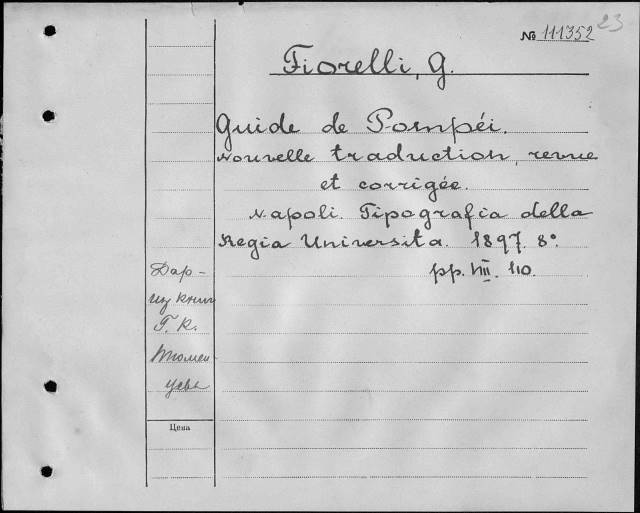 23
№ 111352
Fiorelli, G.
Guide de Pompéi.
Nouvelle traduction, revue
et corrigée.
Napoli. Tipografia della
Regia Universita. 1897. 8°.
pp. VIII. 110.
Дар –
из книг
Г. К.
Тюмен
цева
Цена